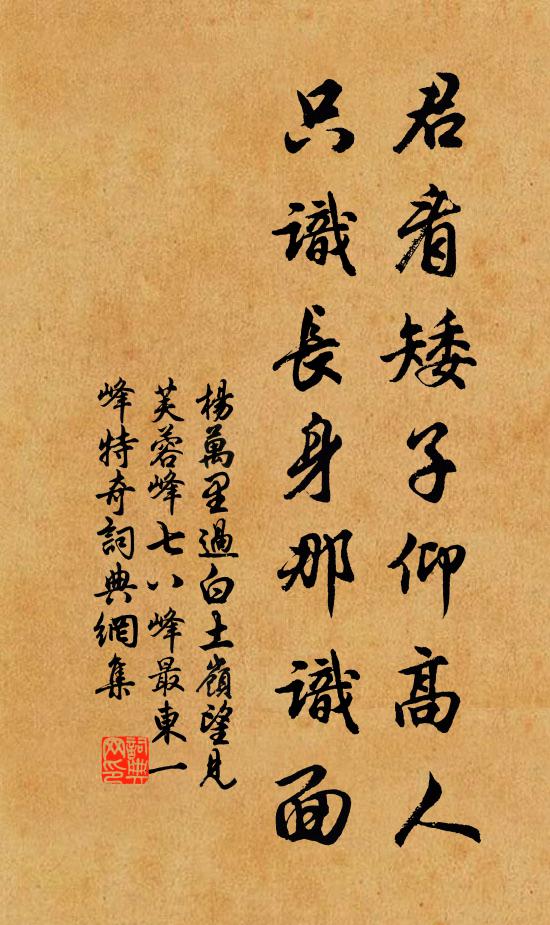 君看矮子仰高人
只識長身那識面
楊萬里過白土嶺望見
芙蓉峰七八峰最東一
峰特奇詞典網集
詞典
网印